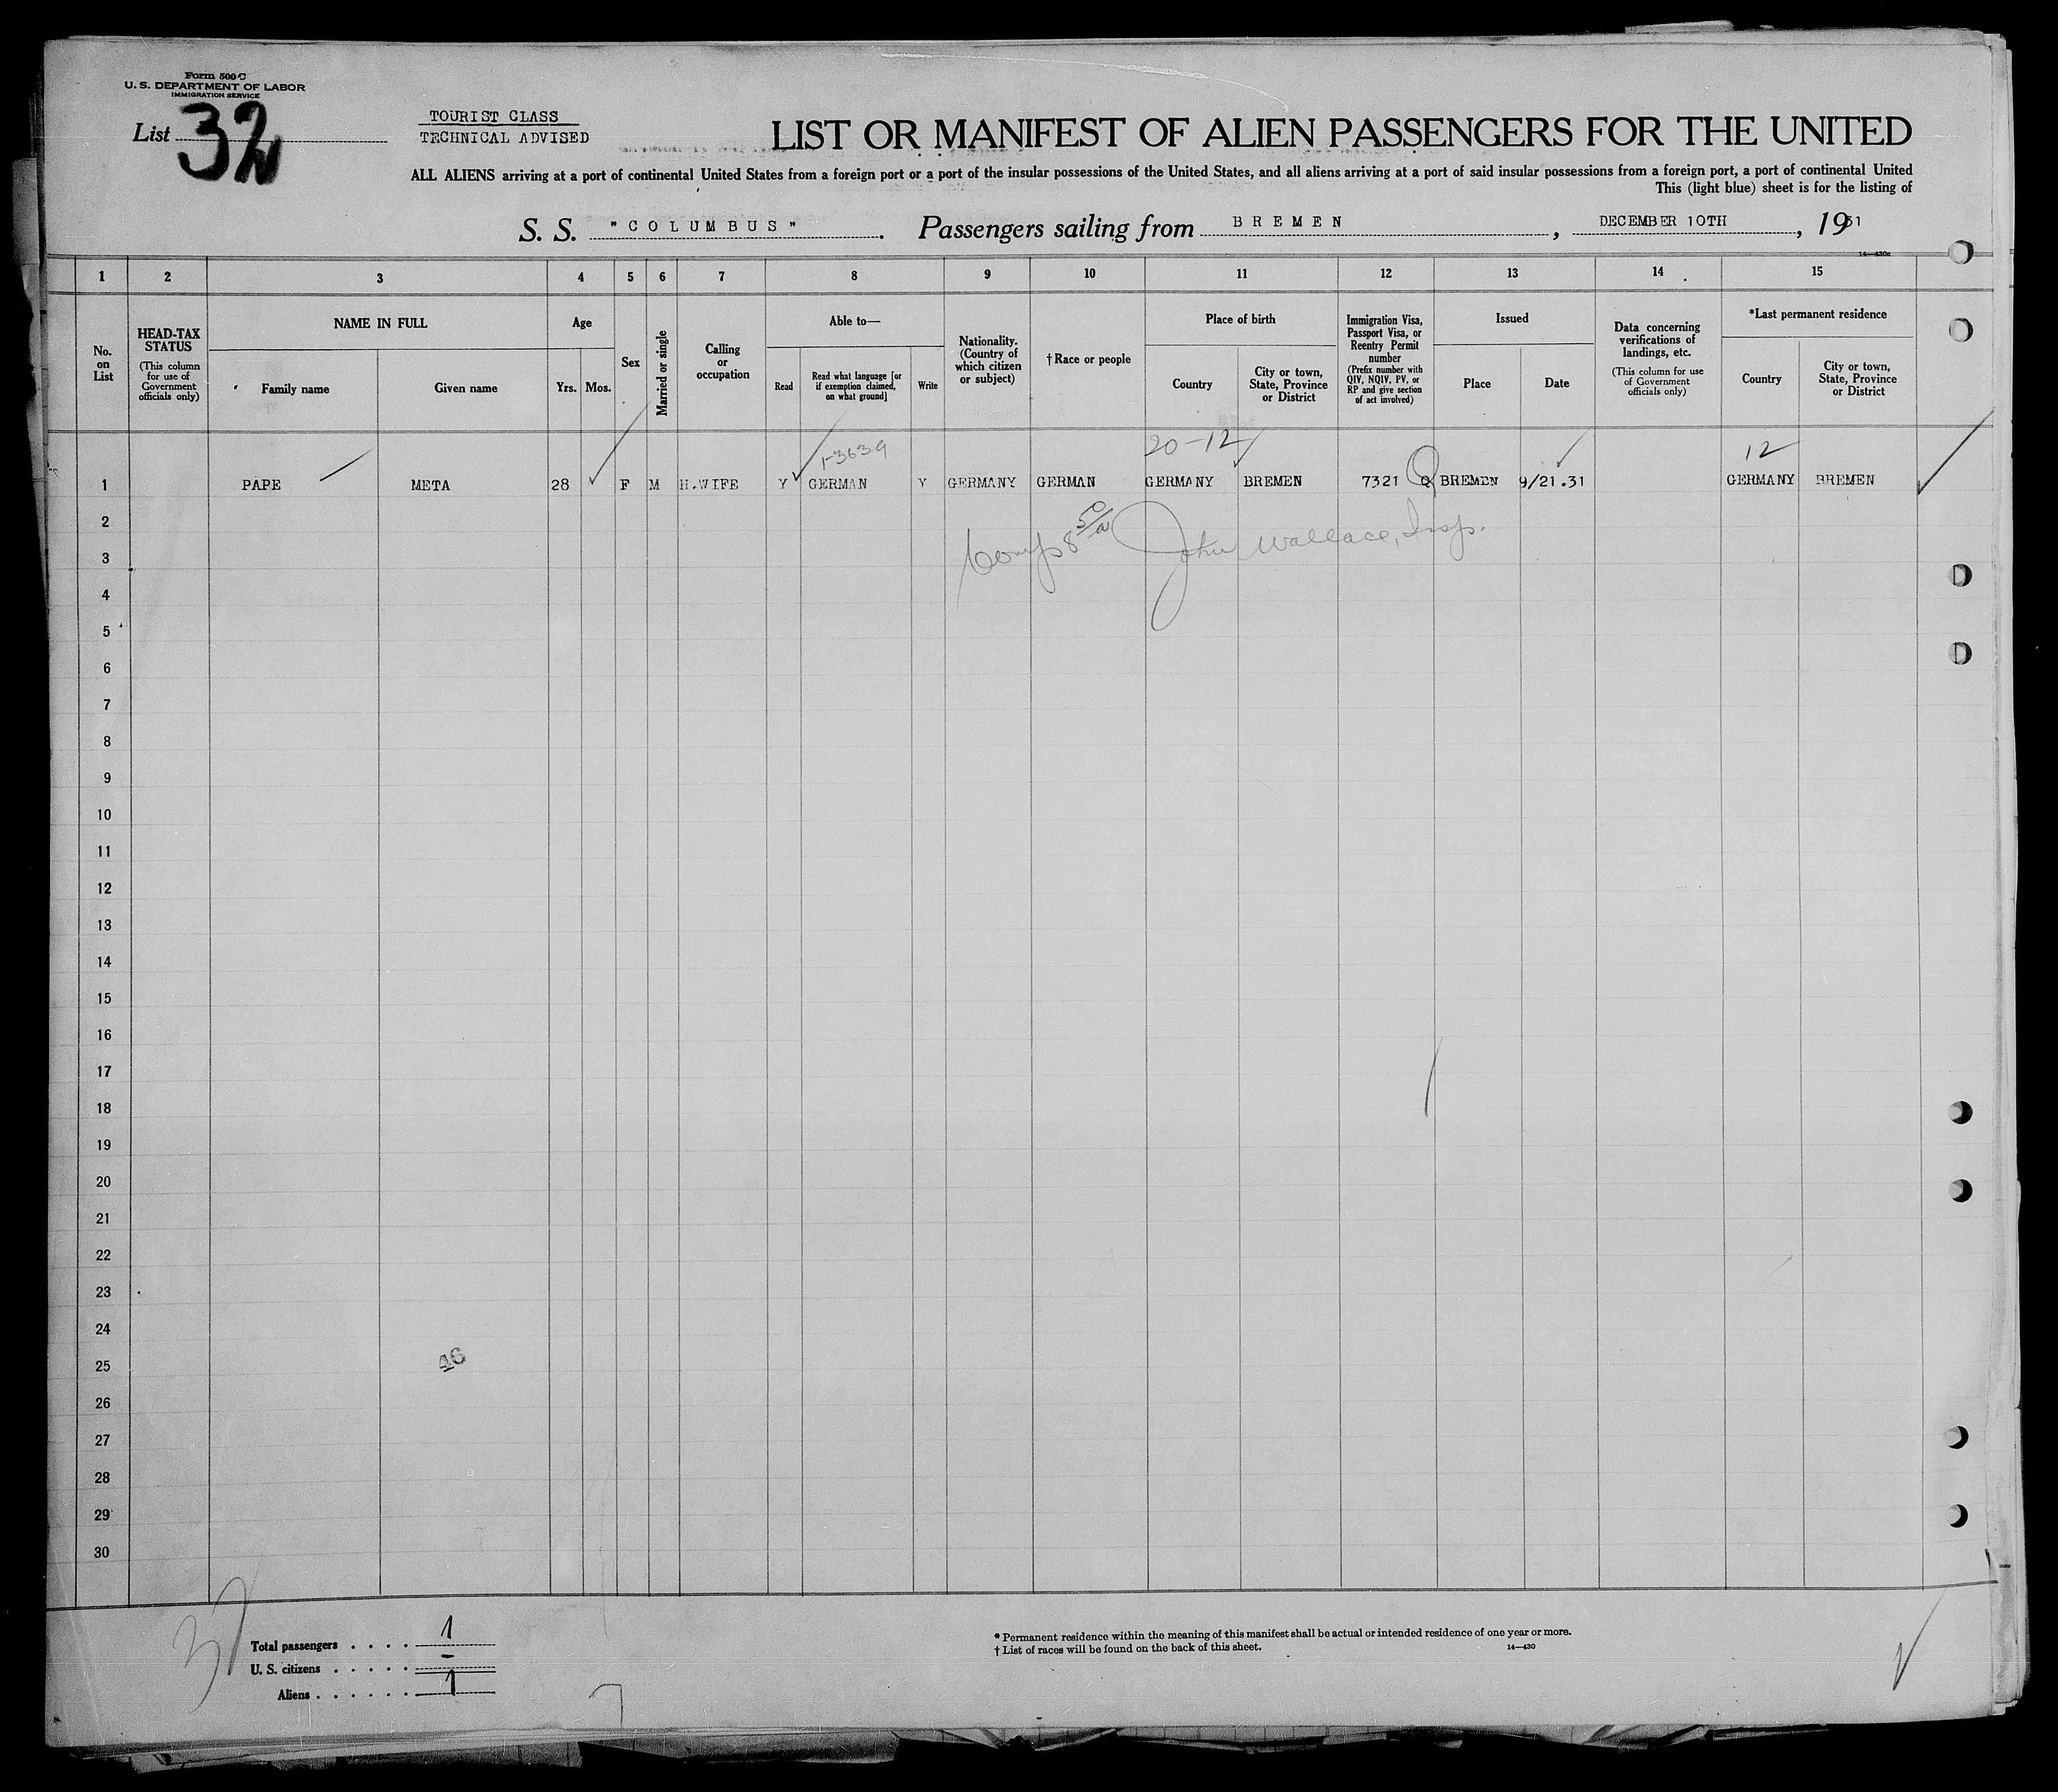 Form 500 C
U. S. DEPARTMENT OF LABOR
IMMIGRATION SERVICE
List 32
TOURIST CLASS
TECHNICAL ADVISED
LIST OR MANIFEST OF ALIEN PASSENGERS FOR THE UNITED
ALL ALIENS arriving at a port of continental United States from a foreign port or a port of the insular possessions of the United States, and all aliens arriving at a port of said insular possessions from a foreign port, a port of continental United
This (light blue) sheet is for the listing of
S. S. "COLUMBUS". Passengers sailing from BREMEN, DECEMBER 10TH, 1931
14—430c
1 2 3 4 5 6 7 8 9 10 11 12 13 14 15
No. on List
HEAD-TAX STATUS
(This column for use of Government officials only)
NAME IN FULL
Family name
Given name
Age
Yrs. Mos.
Sex
Married or single
Calling or occupation
Able to—
Read
Read what language [or if exemption claimed, on what ground]
Write
Nationality. (Country of which citizen or subject)
†Race or people
Place of birth
Country
City or town, State, Province or District
Immigration Visa, Passport Visa, or Reentry Permit number
(Prefix number with QIV, NQIV, PV, or RP and give section of act involved)
Issued
Place
Date
Data concerning verifications of landings, etc.
(This column for use of Government officials only)
*Last permanent residence
Country
City or town, State, Province or District
1-3639 20-12 12
1 PAPE META 28 F M H.WIFE Y GERMAN Y GERMANY GERMAN GERMANY BREMEN 7321 Q BREMEN 9/21.31 GERMANY BREMEN
2
John Wallace, Insp.
3
4
5
6
7
8
9
10
11
12
13
14
15
16
17
18
19
20
21
22
23
24
25
46
26
27
28
29
30
37
Total passengers . . . . 1
U. S. citizens . . . . . –
Aliens . . . . . . 1
* Permanent residence within the meaning of this manifest shall be actual or intended residence of one year or more.
† List of races will be found on the back of this sheet.
14—430